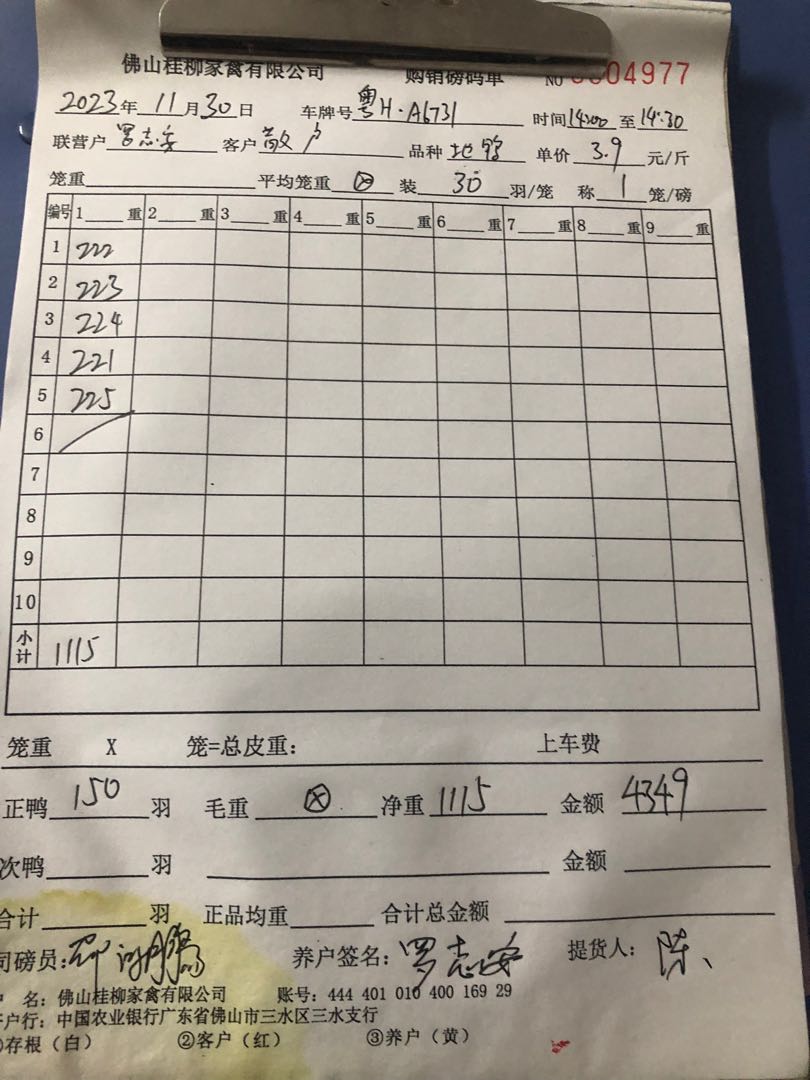 佛山桂柳家禽有限公司 购销磅码单 NO 0004977
2023年 11月30日 车牌号 粤H·A6731 时间14:00至14:30
联营户 罗志安 客户 散户 品种 地鸭 单价 3.9 元/斤
笼重 平均笼重 ⊗ 装 30 羽/笼 称 1 笼/磅
编号 1 重 2 重 3 重 4 重 5 重 6 重 7 重 8 重 9 重
1 222
2 223
3 224
4 221
5 225
6
7
8
9
10
小计 1115
笼重 X 笼=总皮重: 上车费
正鸭 150 羽 毛重 ⊗ 净重 1115 金额 4349
次鸭 羽 金额
合计 羽 正品均重 合计总金额
司磅员: 养户签名: 罗志安 提货人: 陈、
户 名: 佛山桂柳家禽有限公司 账号: 444 401 010 400 169 29
户行: 中国农业银行广东省佛山市三水区三水支行
存根(白) ②客户(红) ③养户(黄)